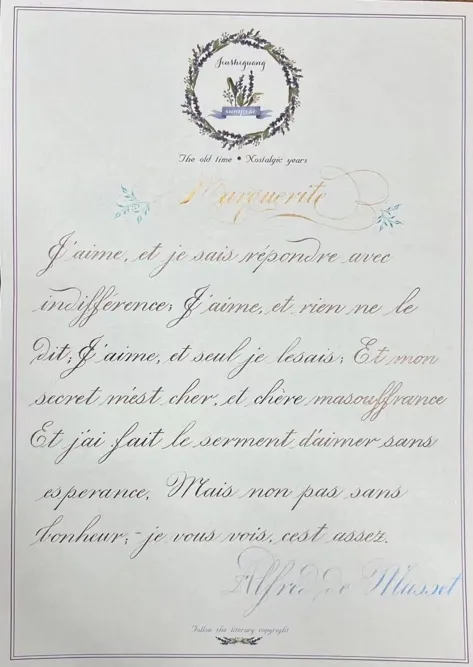 Jiushiguang
The old time • Nostalgic years
Marguerite
J'aime, et je sais répondre avec
indifférence; J'aime, et rien ne le
dit; J'aime, et seul je lesais; Et mon
secret m'est cher, et chère masouffrance
Et j'ai fait le serment d'aimer sans
esperance, Mais non pas sans
bonheur; - je vous vois, c'est assez.
Alfred de Musset
Follow the literary copyright